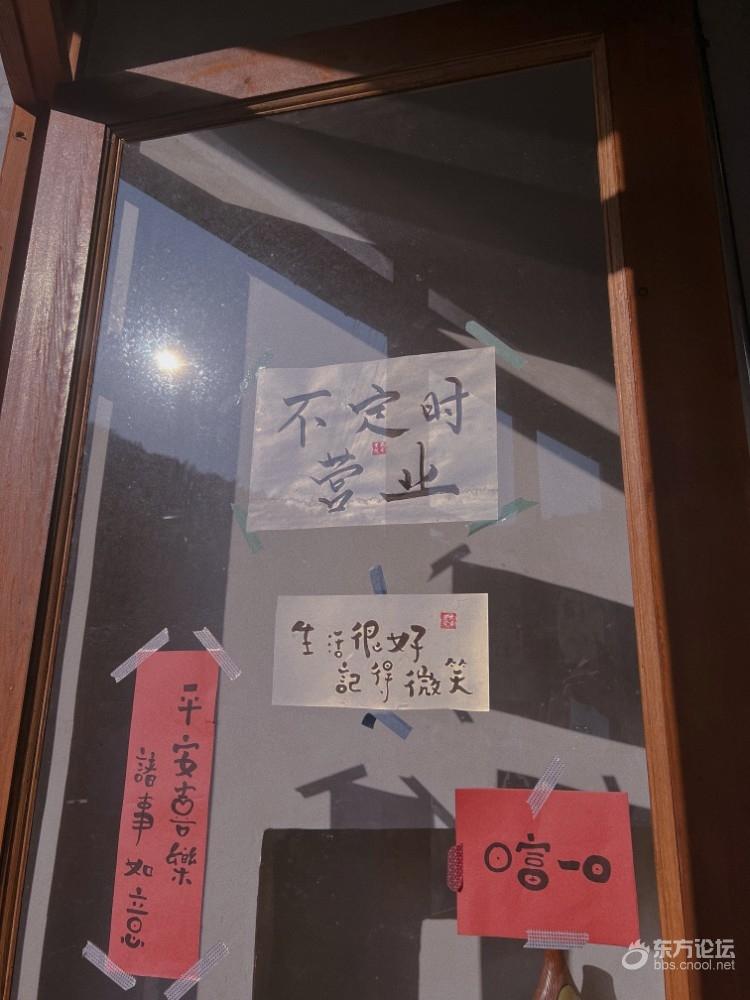 不定时
营业
生活很好
記得微笑
平安喜樂
諸事如意
日富一日
东方论坛
bbs.cnool.net